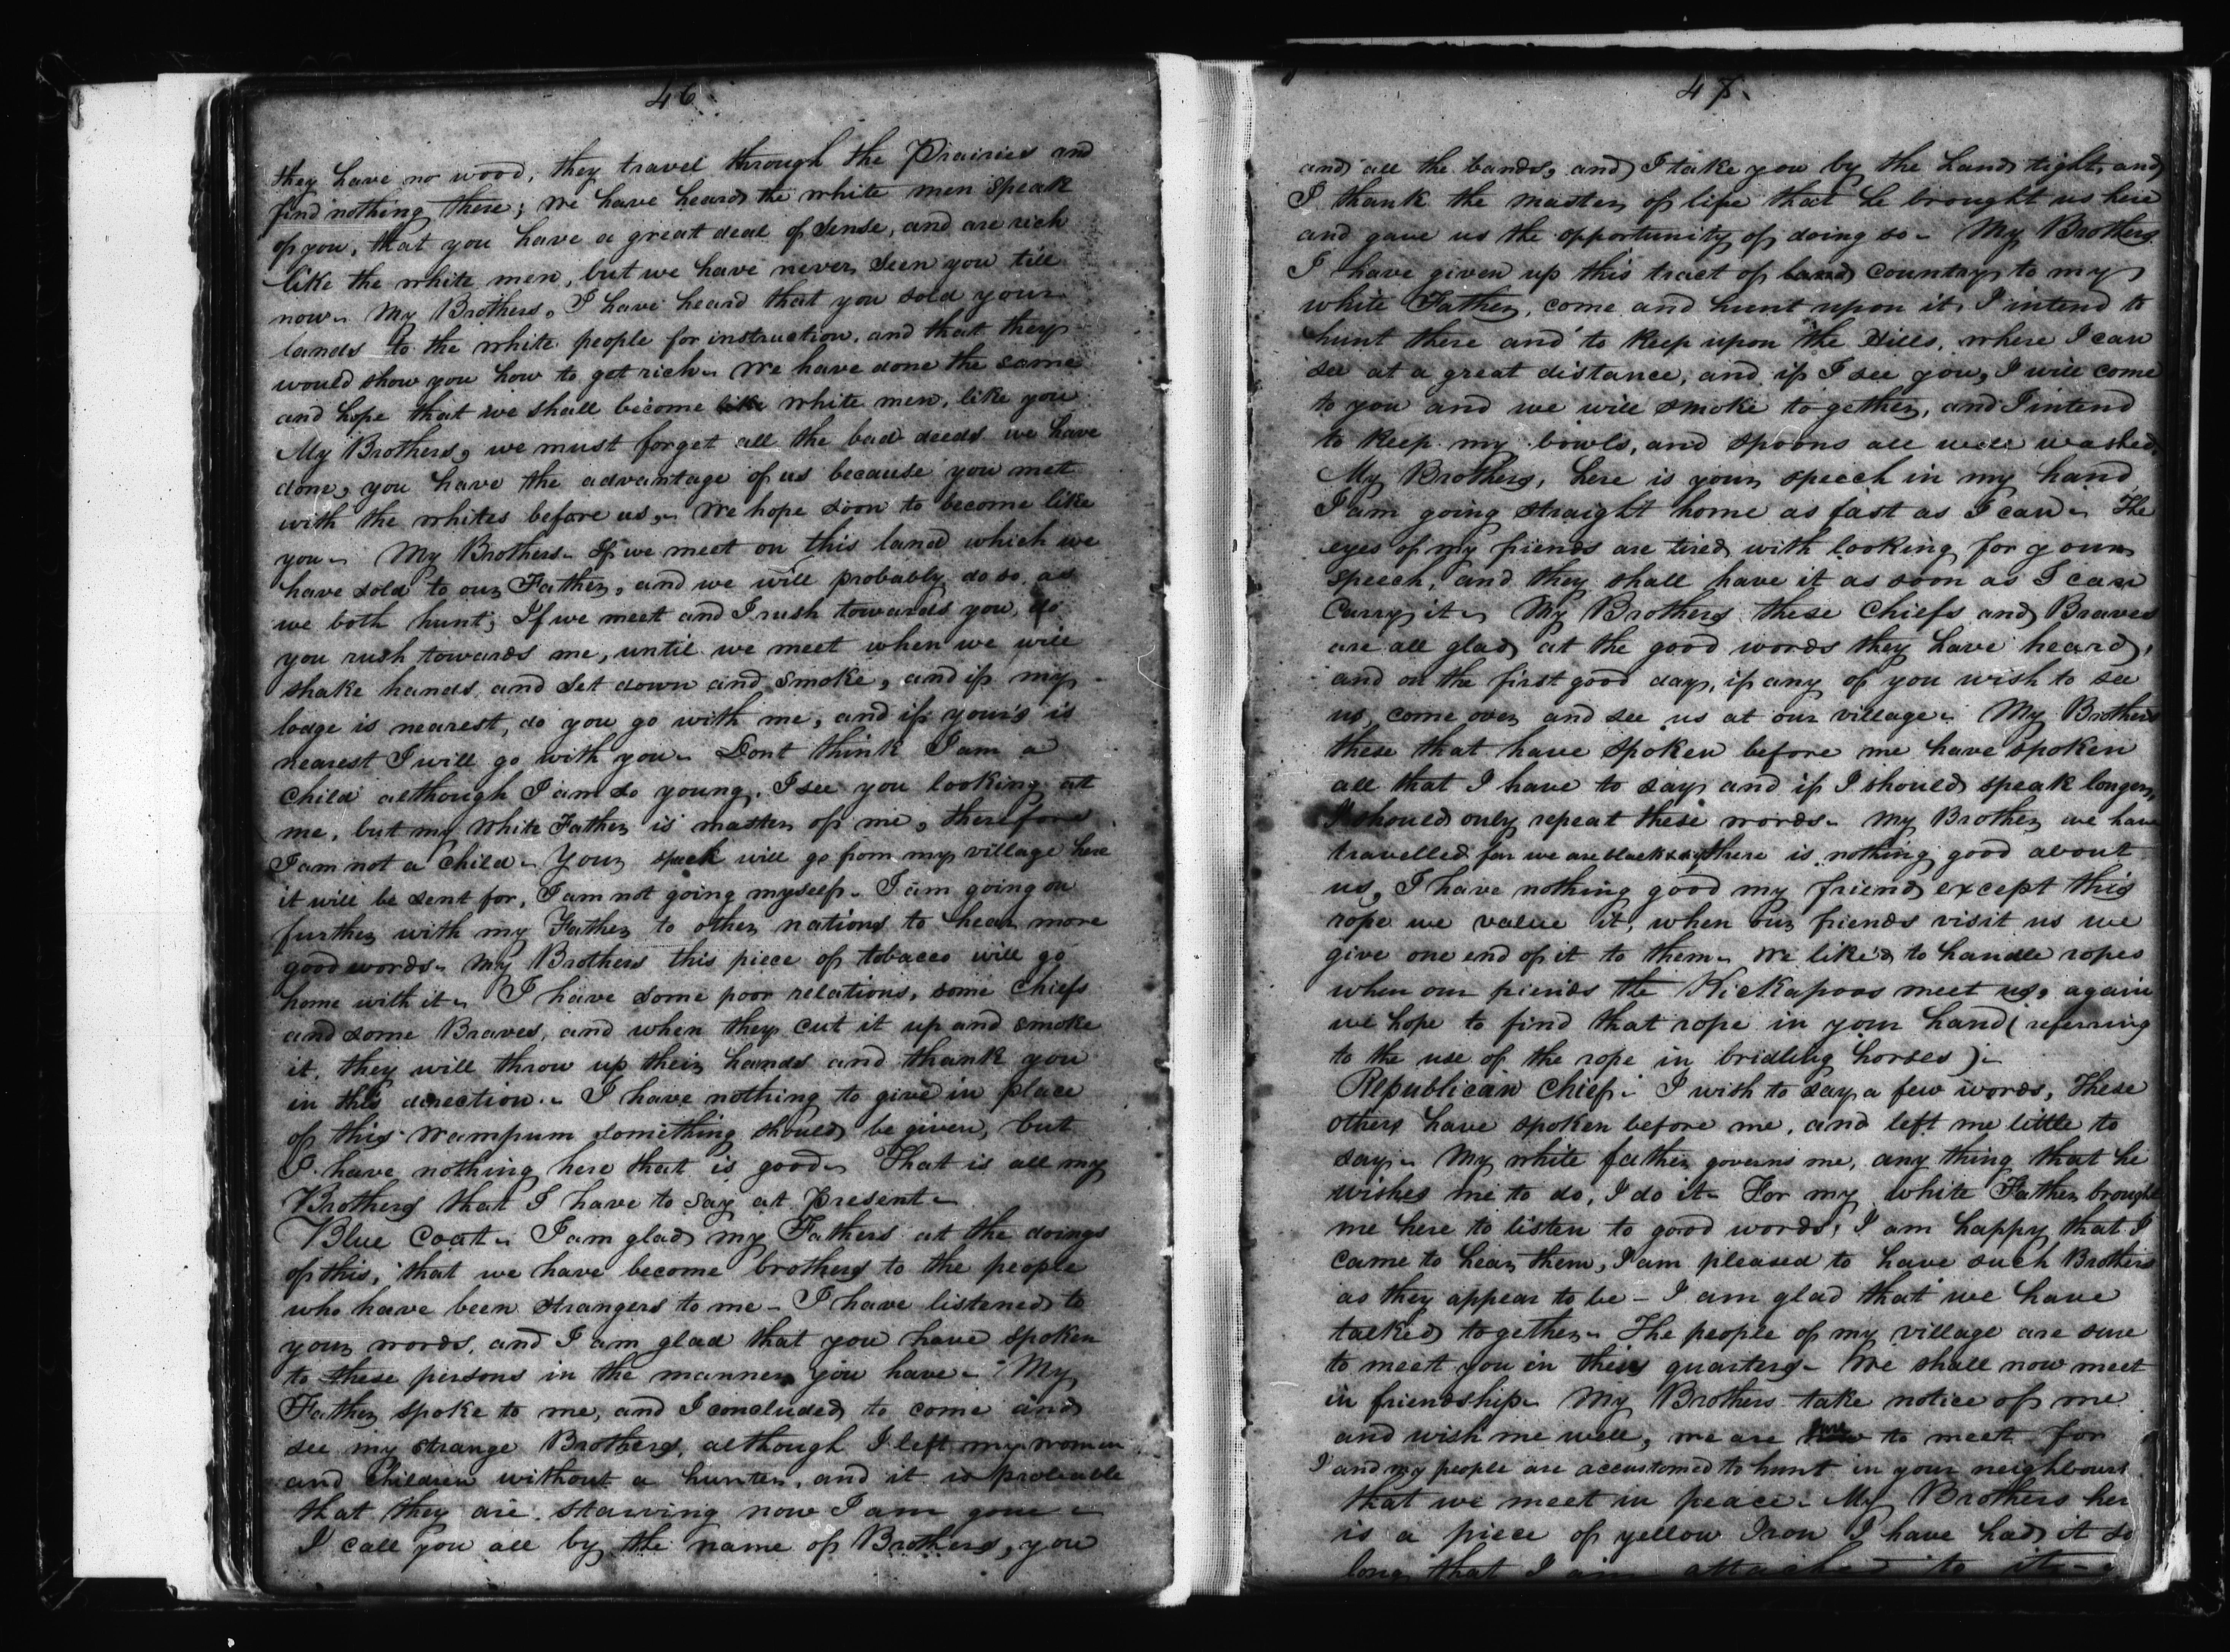 46.
they have no wood, they travel through the Prairies and
find nothing there; we have heard the white men speak
of you, that you have a great deal of sense, and are rich
like the white men, but we have never seen you till
now. My Brothers, I have heard that you sold your
lands to the white people for instruction, and that they
would show you how to get rich. We have done the same
and hope that we shall become like white men, like you
My Brothers, we must forget all the bad deeds we have
done, you have the advantage of us because you met
with the whites before us, We hope soon to become like
you. My Brothers. If we meet on this land which we
have sold to our Father, and we will probably do so, as
we both hunt; If we meet and I rush towards you, do
you rush towards me, until we meet when we will
shake hands, and set down and smoke, and if my
lodge is nearest, do you go with me, and if your's is
nearest I will go with you. Dont think I am a
child although I am so young. I see you looking at
me, but my white Father is master of me, therefore
I am not a child. Your speech will go from my village here
it will be sent for, I am not going myself. I am going on
further with my Father to other nations to hear more
good words. My Brothers this piece of tobacco will go
home with it. I have some poor relations, some Chiefs
and some Braves, and when they cut it up and smoke
it, they will throw up their hands and thank you
in this direction. I have nothing to give in place
of this wampum something should be given, but
I have nothing here that is good. That is all my
Brothers that I have to say at present.
Blue Coat. I am glad my Fathers at the doings
of this, that we have become brothers to the people
who have been strangers to me - I have listened to
your words, and I am glad that you have spoken
to these persons in the manner you have. My
Father spoke to me, and I concluded to come and
see my strange Brothers, although I left my women
and children without a hunter, and it is probable
that they are starving now I am gone -
I call you all by the name of Brothers, you
47.
and all the bands, and I take you by the hand tight, and
I thank the master of life that he brought us here
and gave us the opportunity of doing so - My Brothers
I have given up this tract of land country to my
white Father, come and hunt upon it, I intend to
hunt there and to keep upon the Hills, where I can
see at a great distance, and if I see you, I will come
to you and we will smoke together, and I intend
to keep my bowls, and spoons all well washed.
My Brothers, here is your speech in my hand
I am going straight home as fast as I can. The
eyes of my friends are tired with looking for your
speech, and they shall have it as soon as I can
carry it. My Brothers these Chiefs and Braves
are all glad at the good words they have heard,
and on the first good day, if any of you wish to see
us, come over and see us at our village. My Brothers
these that have spoken before me have spoken
all that I have to say and if I should speak longer,
I should only repeat these words. My Brother we have
travelled far we are black & there is nothing good about
us, I have nothing good my friend except this
rope we value it, when our friends visit us we
give one end of it to them. We like'd to handle ropes
when our friends the Kickapoos meet us, again
we hope to find that rope in your hand (referring
to the use of the rope in bridling horses).
Republican Chief. I wish to say a few words, These
others have spoken before me, and left me little to
say. My white father governs me, any thing that he
wishes me to do, I do it. For my white Father brought
me here to listen to good words; I am happy that I
came to hear them, I am pleased to have such Brothers
as they appear to be - I am glad that we have
talked together. The people of my village are sure
to meet you in their quarters. We shall now meet
in friendship. My Brothers take notice of me
and wish me well, we are sure to meet for
I and my people are accustomed to hunt in your neighbour
that we meet in peace. My Brothers her
is a piece of yellow Iron I have had it so
long that I am attached to it